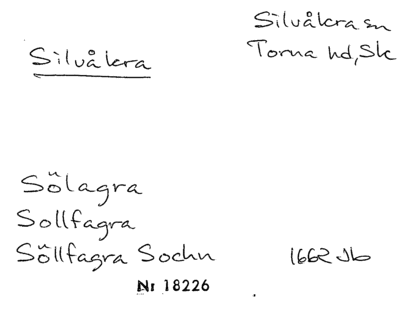 Silvåkra sn
Torna hd, Sk
Silvåkra
Sölagra
Sollfagra
Söllfagra Sochn 1662 Jb
Nr 18226